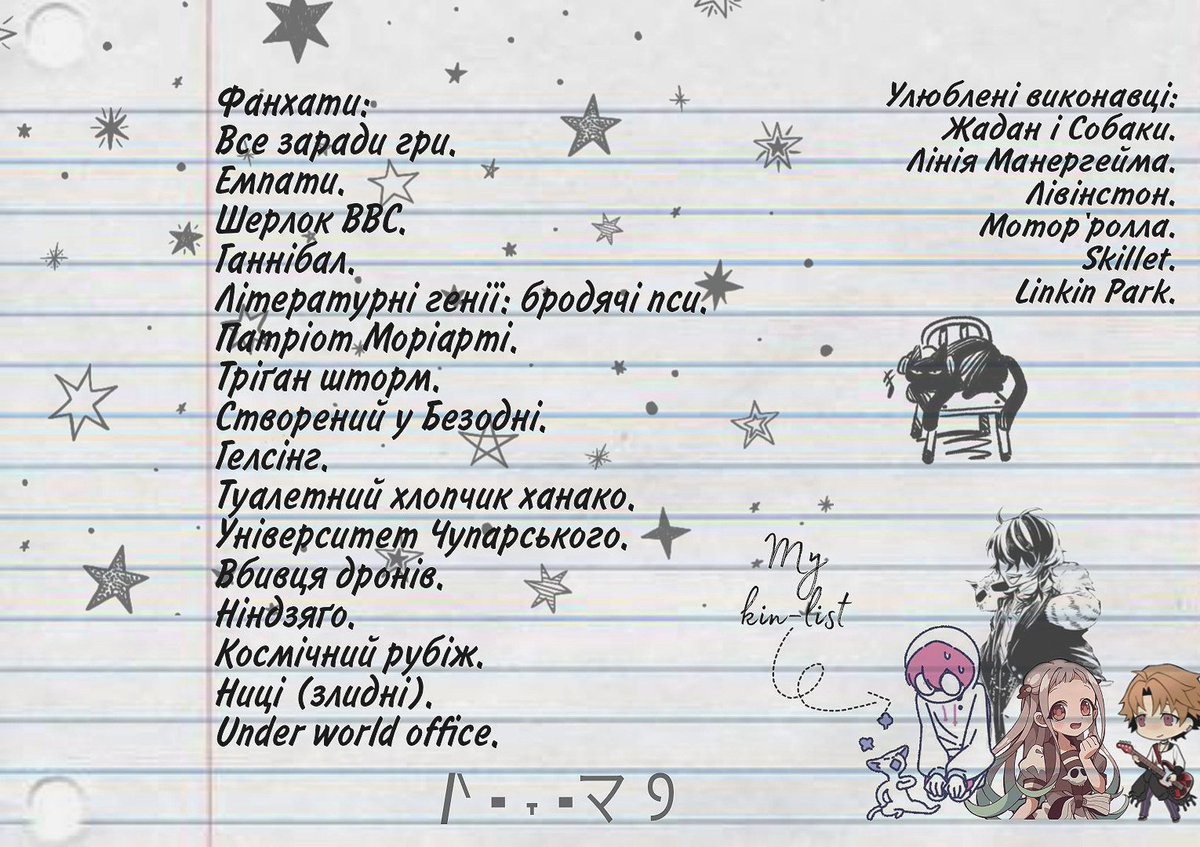 Фанхати:
Все заради гри.
Емпати.
Шерлок BBC.
Ганнібал.
Літературні генії: бродячі пси.
Патріот Моріарті.
Тріґан шторм.
Створений у Безодні.
Гелсінг.
Туалетний хлопчик ханако.
Університет Чупарського.
Вбивця дронів.
Ніндзяґо.
Космічний рубіж.
Ниці (злидні).
Under world office.
Улюблені виконавці:
Жадан і Собаки.
Лінія Манергейма.
Лівінстон.
Мотор`ролла.
Skillet.
Linkin Park.
My
kin-list